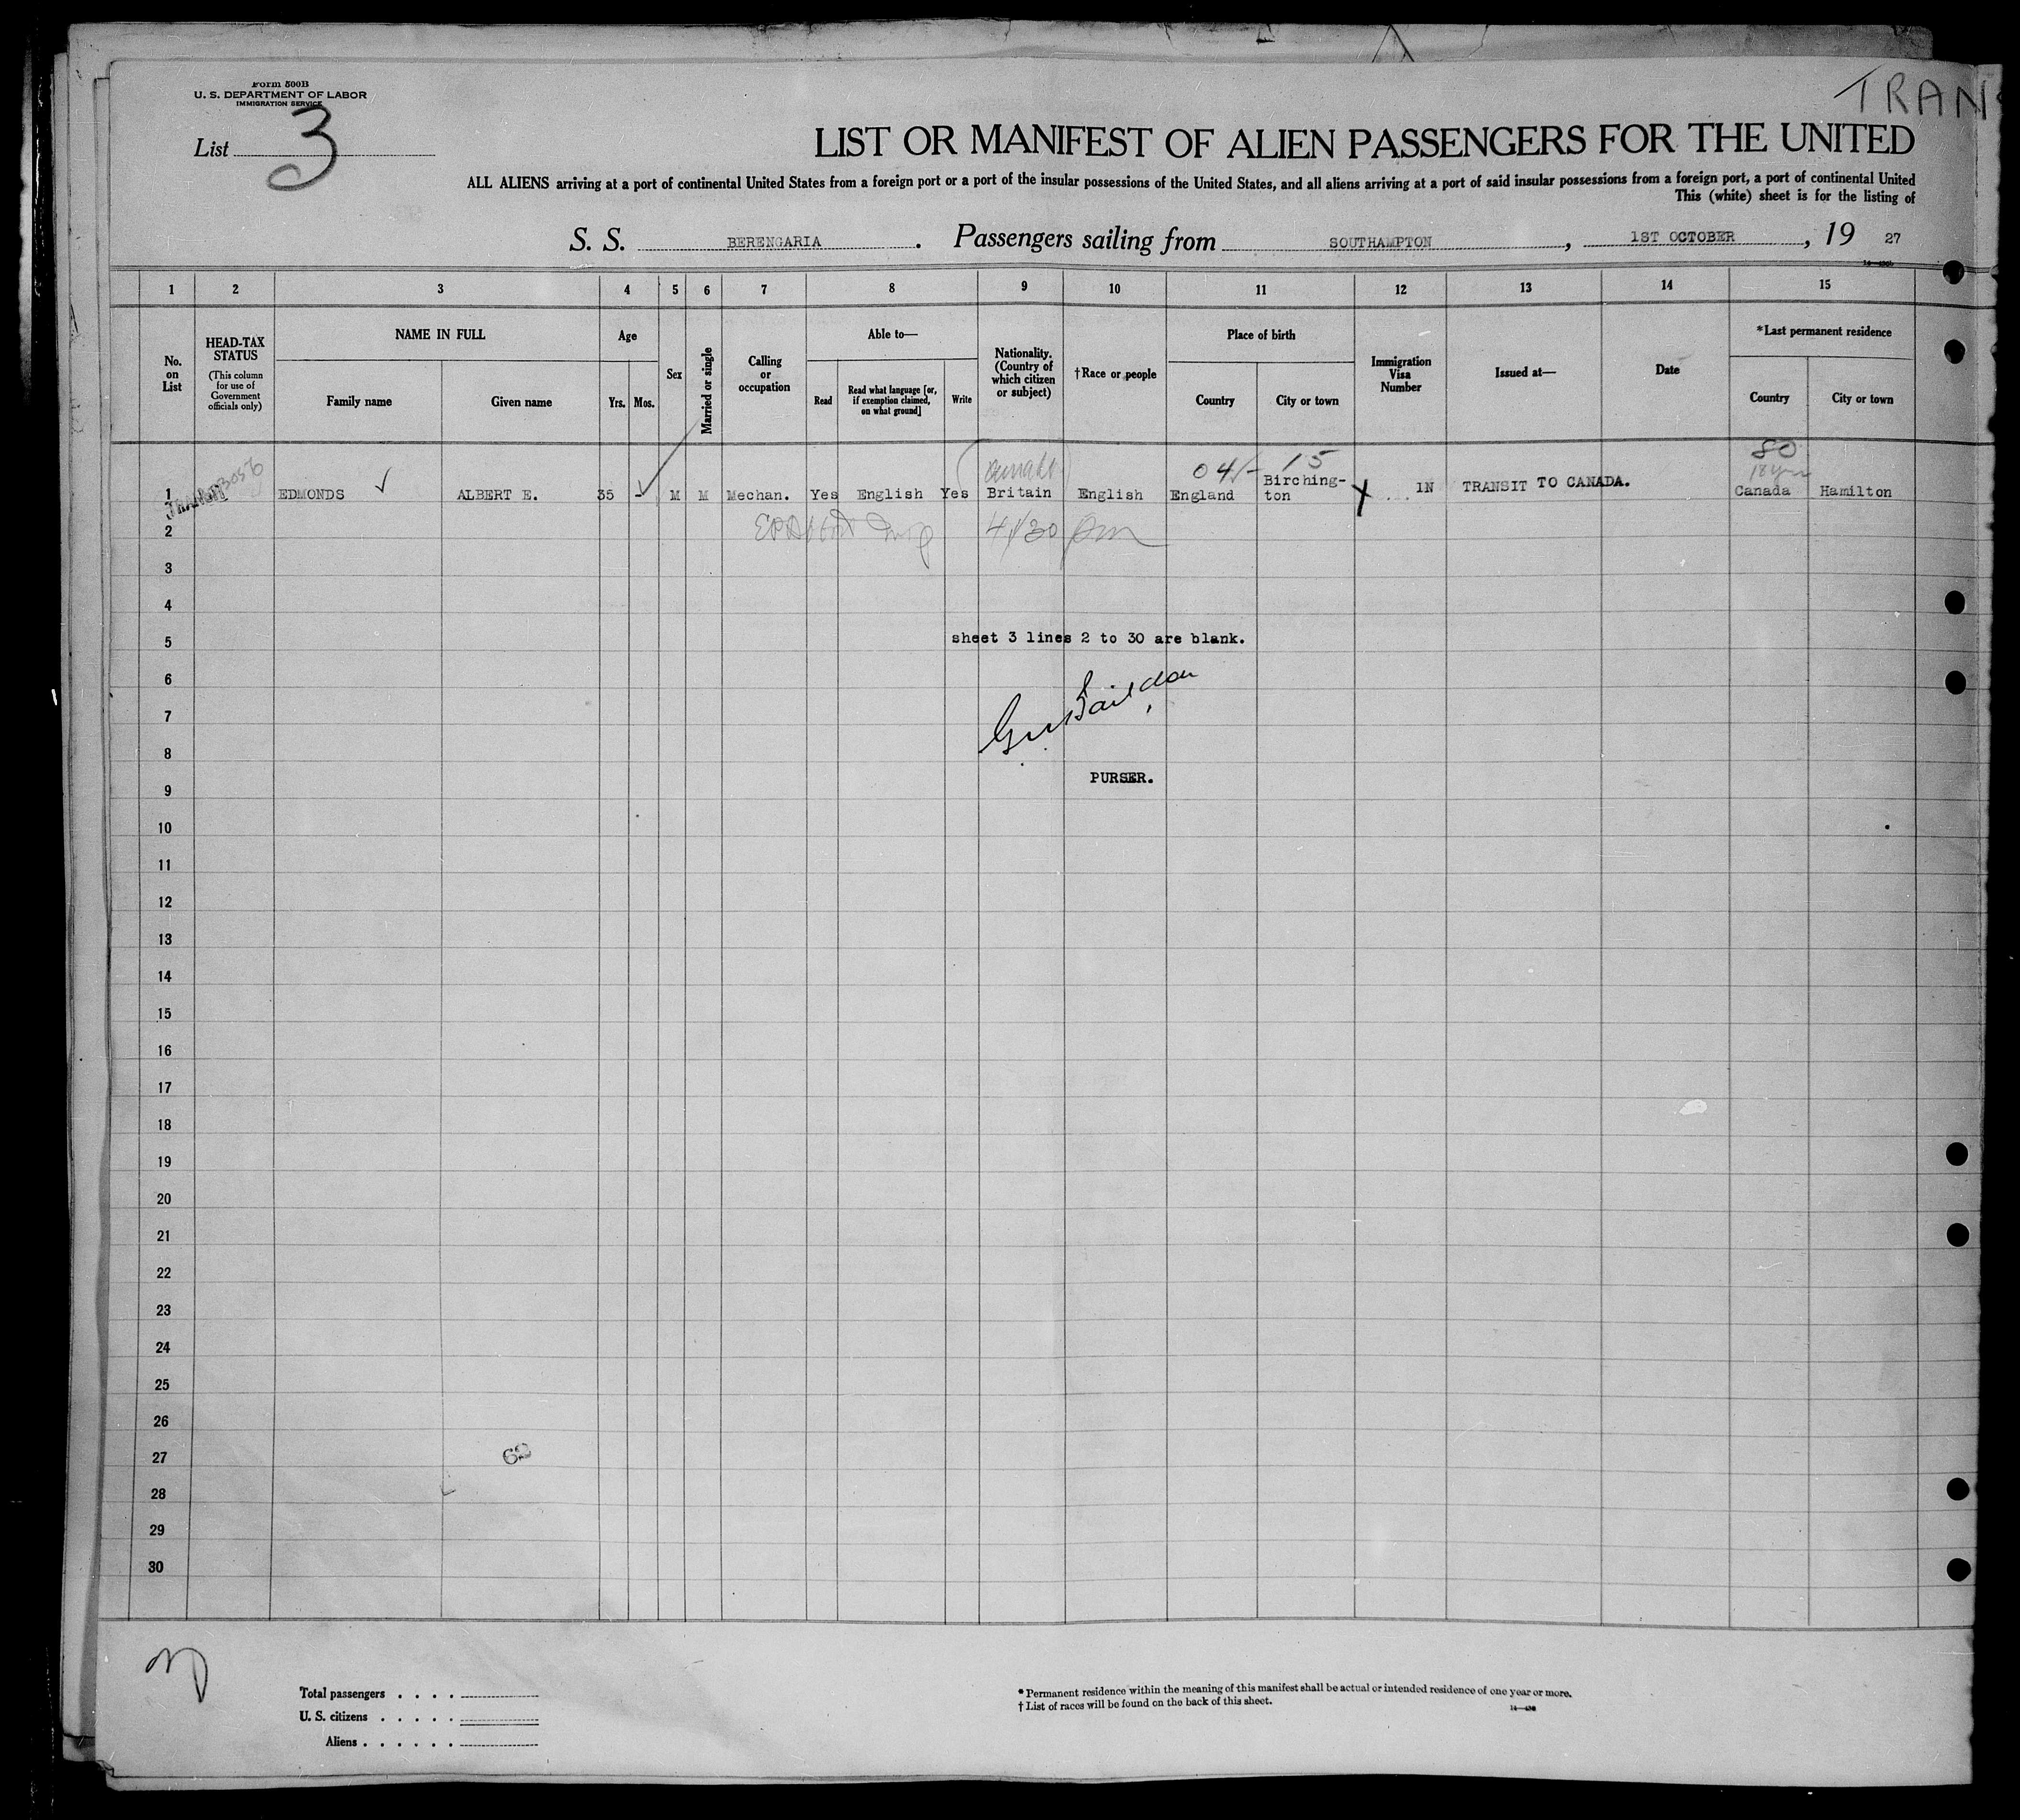 Form 500B
U. S. DEPARTMENT OF LABOR
IMMIGRATION SERVICE
TRAN
List 3
LIST OR MANIFEST OF ALIEN PASSENGERS FOR THE UNITED
ALL ALIENS arriving at a port of continental United States from a foreign port or a port of the insular possessions of the United States, and all aliens arriving at a port of said insular possessions from a foreign port, a port of continental United
This (white) sheet is for the listing of
S. S. BERENGARIA. Passengers sailing from SOUTHAMPTON, 1ST OCTOBER, 19 27
1 2 3 4 5 6 7 8 9 10 11 12 13 14 15
No. on List
HEAD-TAX STATUS
(This column for use of Government officials only)
NAME IN FULL
Family name
Given name
Age
Yrs.
Mos.
Sex
Married or single
Calling or occupation
Able to—
Read
Read what language [or, if exemption claimed, on what ground]
Write
Nationality. (Country of which citizen or subject)
†Race or people
Place of birth
Country
City or town
Immigration Visa Number
Issued at—
Date
*Last permanent residence
Country
City or town
04/- 15 80
18 yrs
1 EDMONDS ALBERT E. 35 - M M Mechan. Yes English Yes Britain English England Birching-
ton X IN TRANSIT TO CANADA. Canada Hamilton
2 4/30
3
4
5 sheet 3 lines 2 to 30 are blank.
6
7
8
9 PURSER.
10
11
12
13
14
15
16
17
18
19
20
21
22
23
24
25
26
27 62
28
29
30
Total passengers . . . .
U. S. citizens . . . . .
Aliens . . . . . .
* Permanent residence within the meaning of this manifest shall be actual or intended residence of one year or more.
† List of races will be found on the back of this sheet.